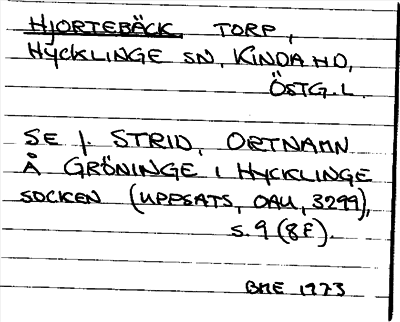 HJORTEBÄCK, TORP,
HYCKLINGE SN, KINDA HD,
ÖSTG.L.
SE J. STRID, ORTNAMN
Å GRÖNINGE I HYCKLINGE
SOCKEN (UPPSATS, OAU, 3299),
S. 9 (8F).
1973